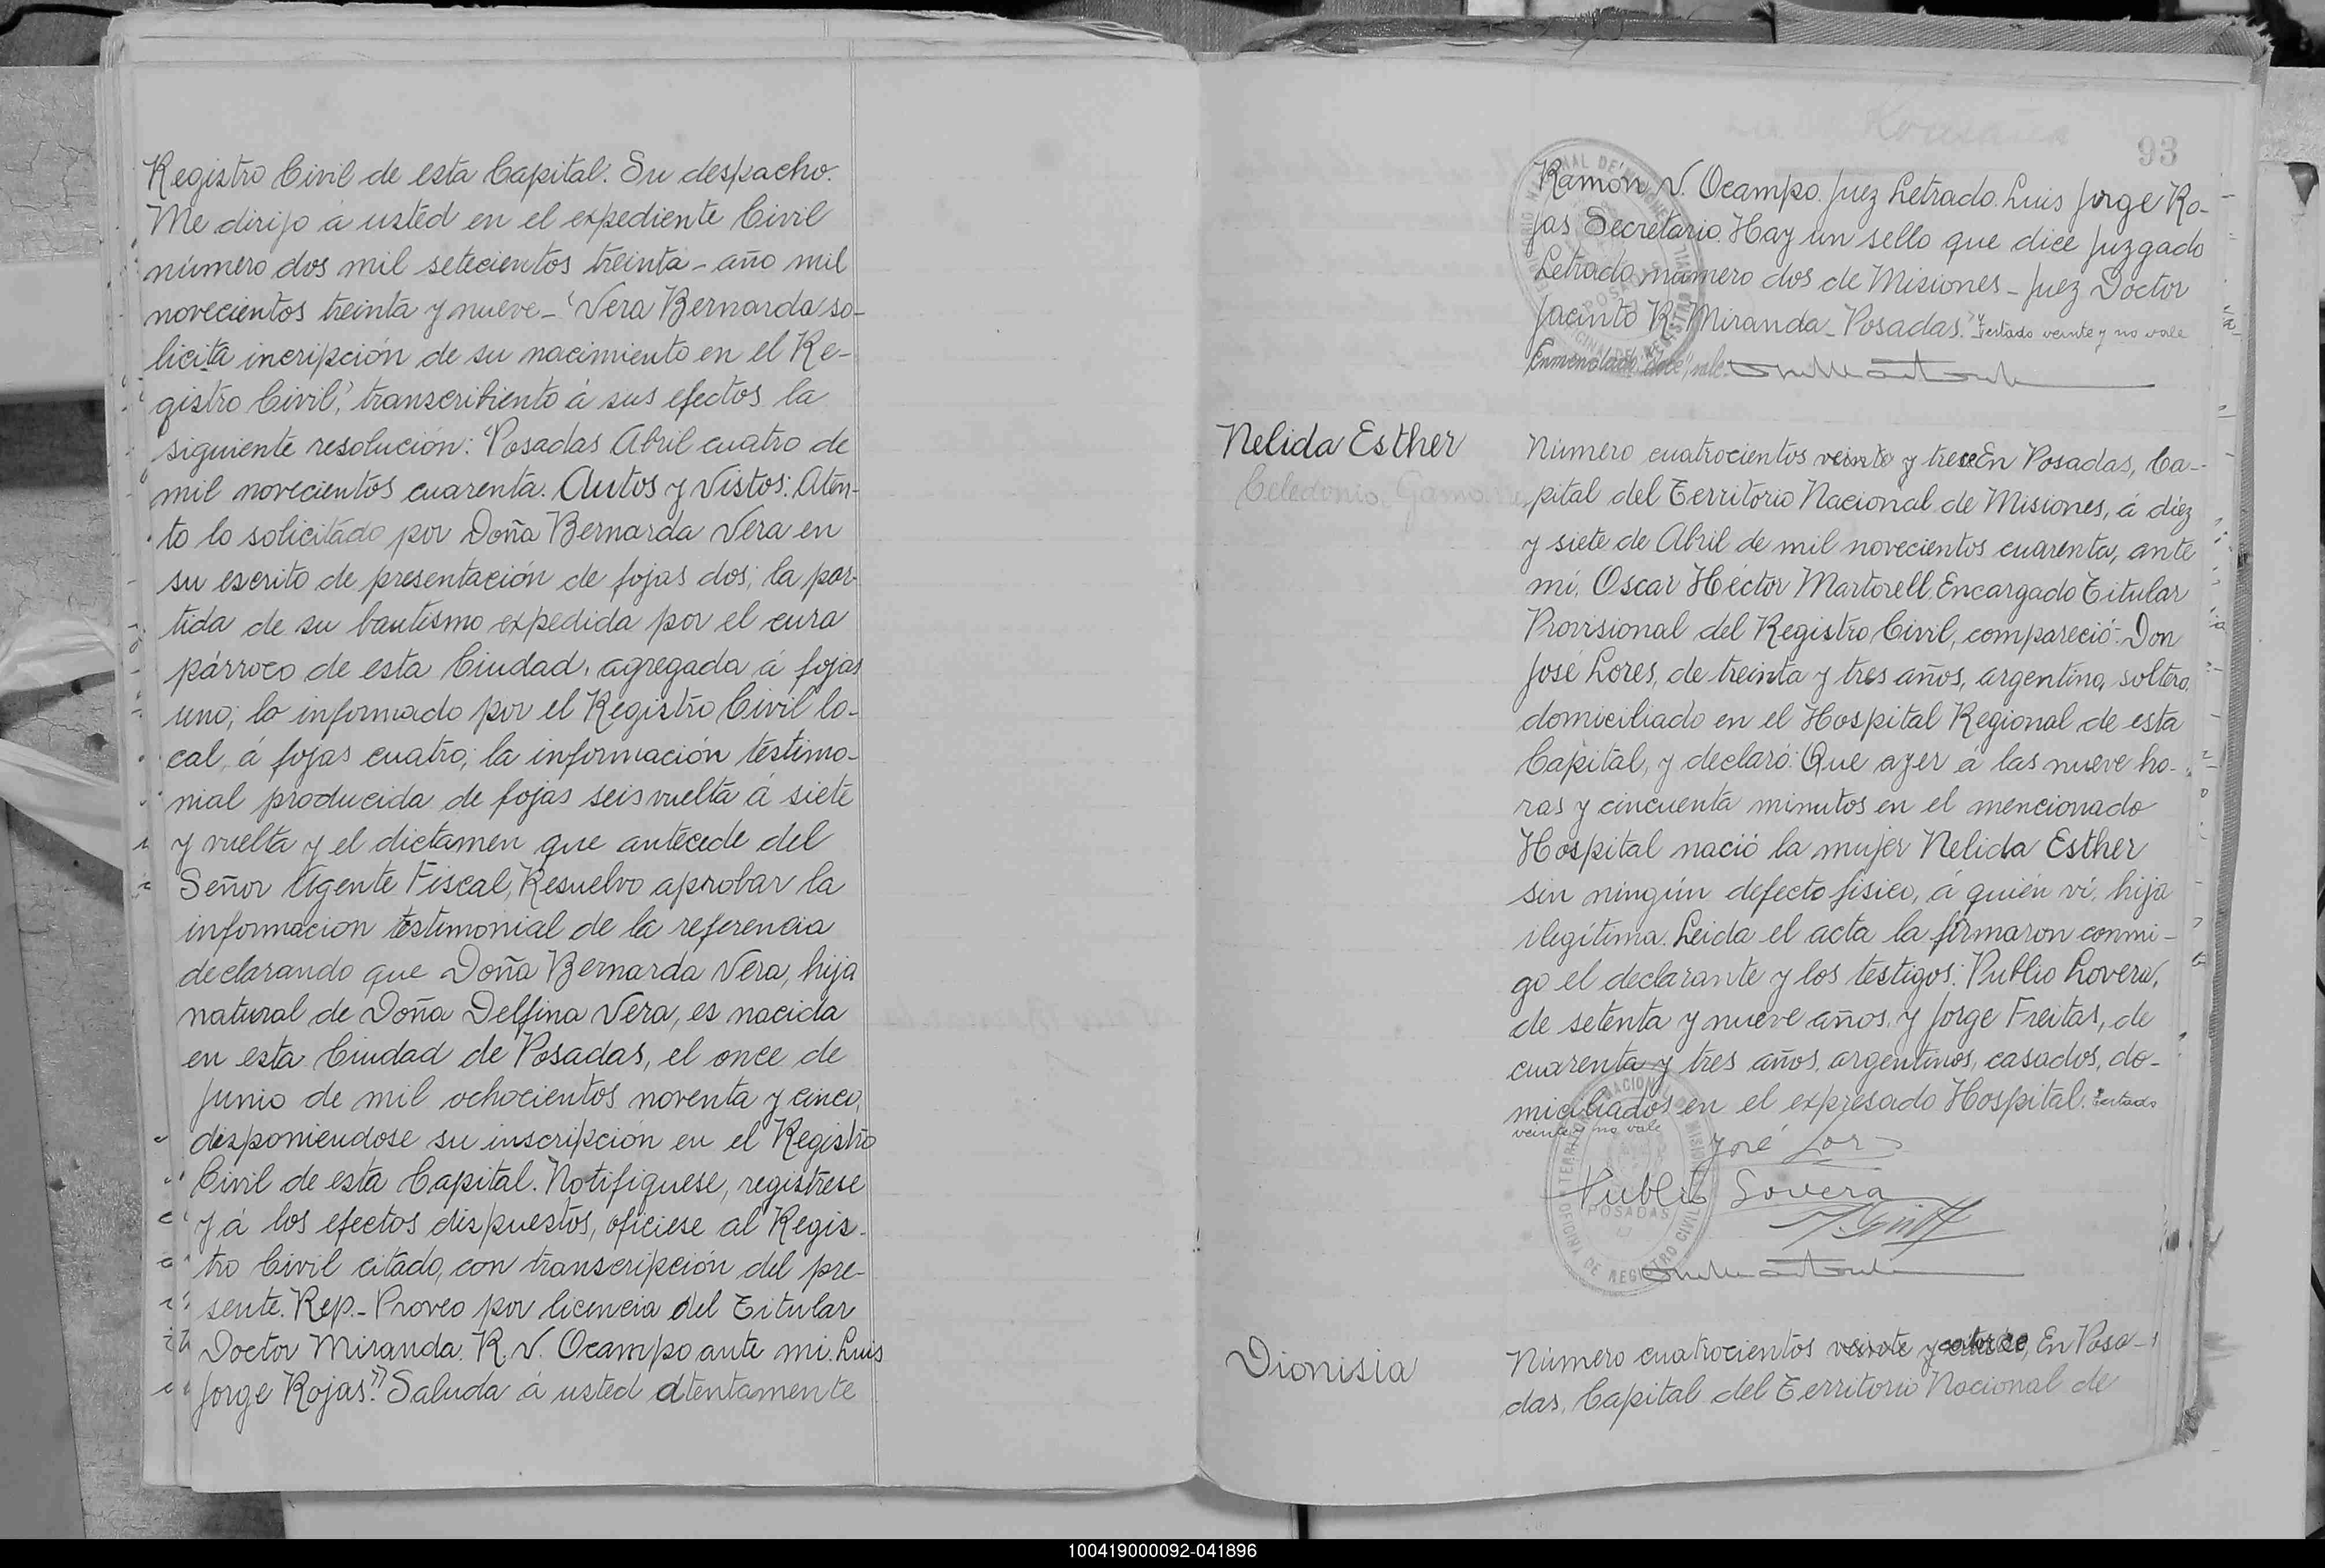 Registro Civil de esta Capital. Su despacho.
Me dirijo á usted en el expediente Civil
número dos mil setecientos treinta - año mil
novecientos treinta y nueve - "Vera Bernarda so-
licita incripción de su nacimiento en el Re-
gistro Civil", transcribiento á sus efectos la
siguiente resolución: "Posadas Abril cuatro de
mil novecientos cuarenta. Autos y Vistos: Aten-
to lo solicitado por Doña Bernarda Vera en
su escrito de presentación de fojas dos; la par-
tida de su bautismo expedida por el cura
párroco de esta Ciudad, agregada á fojas
uno; lo informado por el Registro Civil lo-
cal á fojas cuatro; la información testimo-
nial producida de fojas seis vuelta á siete
y vuelta y el dictamen que antecede del
Señor Agente Fiscal, Resuelvo aprobar la
informacion testimonial de la referencia
declarando que Doña Bernarda Vera, hija
natural de Doña Delfina Vera, es nacida
en esta Ciudad de Posadas, el once de
Junio de mil ochocientos noventa y cinco,
disponiendose su inscripción en el Registro
Civil de esta Capital. Notifiquese, registrese
y á los efectos dispuestos, oficiese al Regis-
tro Civil citado, con transcripción del pre-
sente. Rep. - Proveo por licencia del Titular
Doctor Miranda. R. V. Ocampo ante mi. Luis
Jorge Rojas." Saluda á usted atentamente
93
Ramón V. Ocampo. Juez Letrado. Luis Jorge Ro-
jas Secretario. Hay un sello que dice Juzgado
Letrado número dos de Misiones - Juez Doctor
Jacinto R. Miranda - Posadas." Testado veinte y no vale
Enmendado "doce", vale.
Nelida Esther
Celedonio Gamarra
Número cuatrocientos veinte y trece En Posadas, Ca-
pital del Territorio Nacional de Misiones, á diez
y siete de Abril de mil novecientos cuarenta, ante
mi, Oscar Héctor Martorell, Encargado Titular
Provisional del Registro Civil, compareció: Don
José Lores, de treinta y tres años, argentino, soltero,
domiciliado en el Hospital Regional de esta
Capital, y declaró: Que ayer á las nueve ho-
ras y cincuenta minutos en el mencionado
Hospital nació la mujer Nelida Esther
sin ningún defecto fisico, á quién ví, hija
ilegítima. Leida el acta la firmaron conmi-
go el declarante y los testigos: Publio Lovera,
de setenta y nueve años, y Jorge Freitas, de
cuarenta y tres años, argentinos, casados, do-
miciliados en el expresado Hospital. Testado
veinte y no vale
José Lores
Publio Lovera
OFICINA DE REGISTRO CIVIL
POSADAS
Dionisia
Número cuatrocientos veinte y catorce, En Posa-
das, Capital del Territorio Nacional de
100419000092-041896